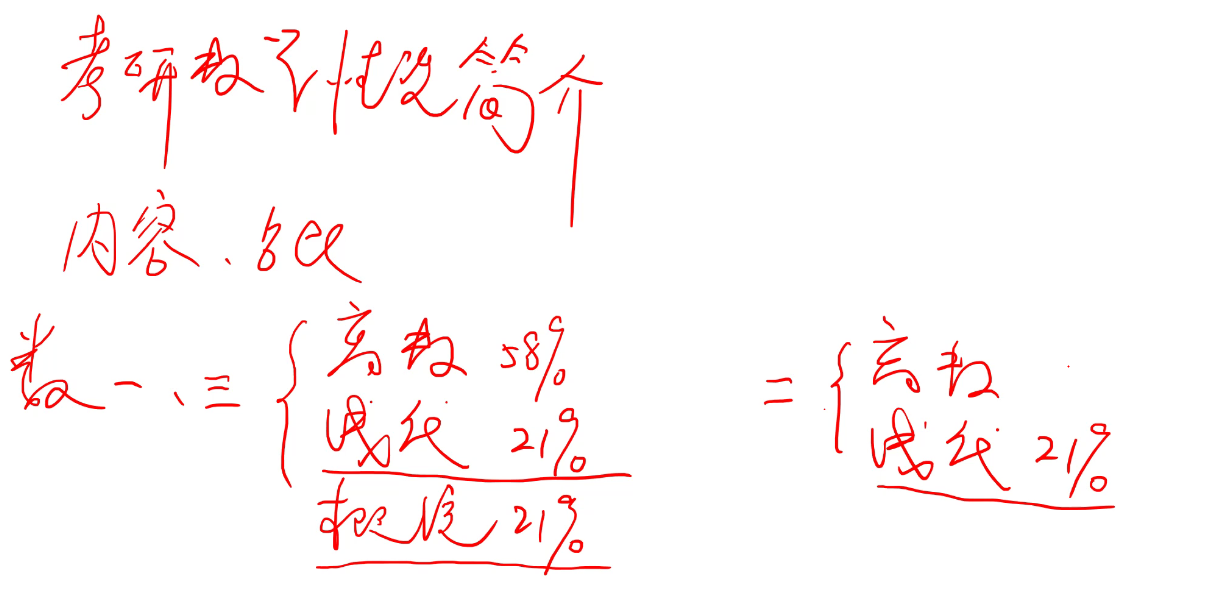 考研数学简介
内容、占比
数一、三
高数 58%
线代 21%
概统 21%
二
高数
线代 21%